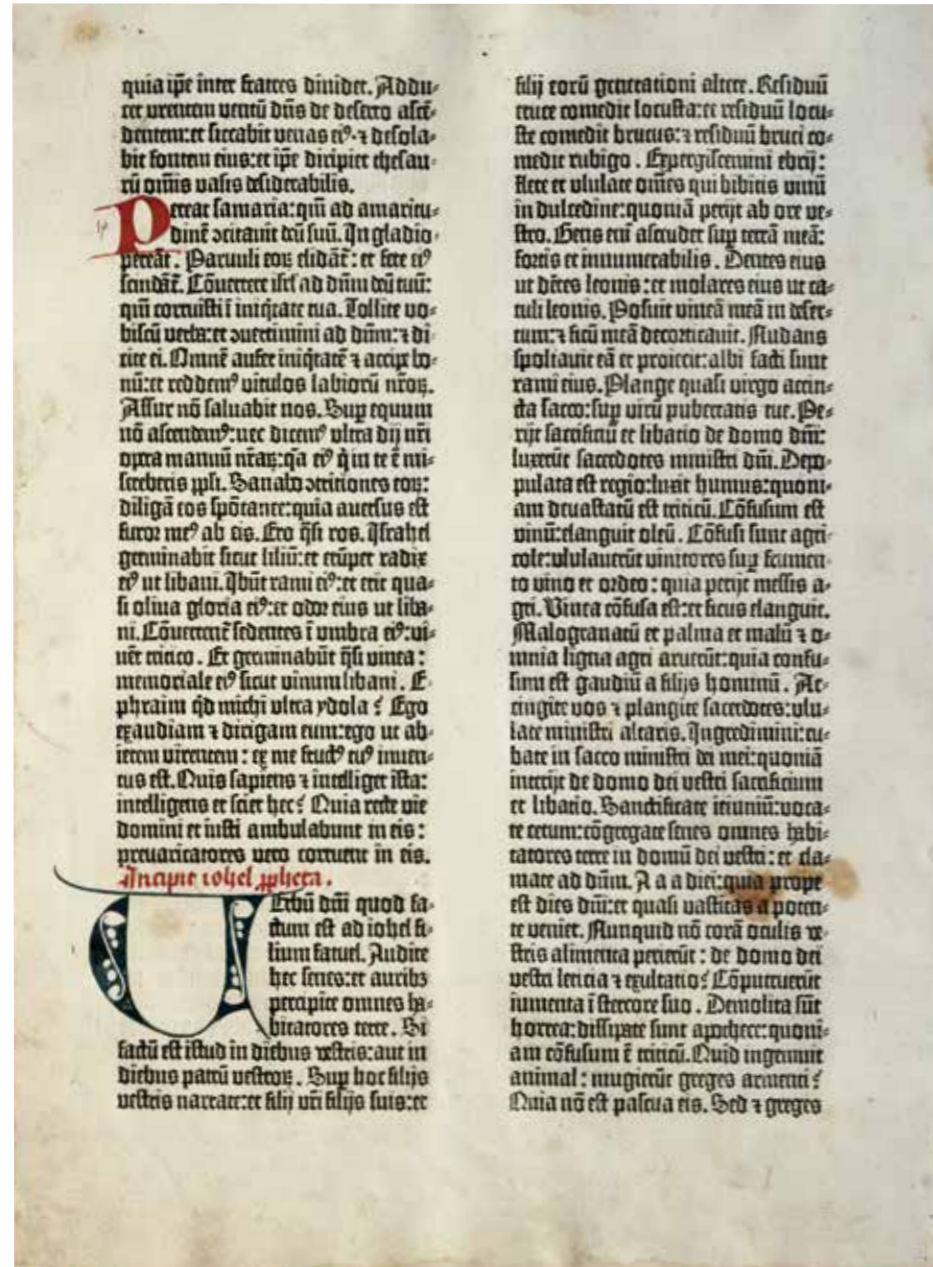 quia ip̄e inter fratres diuidet. Addu⸗
cet vrentem ventū dn̄s de deserto ascē⸗
dentem: et siccabit venas eiꝰ· ⁊ desola⸗
bit fontem eius: et ip̄e diripiet thesau⸗
rū om̄is vasis desiderabilis.
Pereat samaria: qm̄ ad amaritu⸗
dinē ↄcitauit deū suū. In gladio
pereāt. Paruuli eoꝝ elidāt᷑: et fete eiꝰ
scindāt᷑. Cōuertere isrl̄ ad dn̄m deū tuū:
qm̄ corruisti ī iniq̇tate tua. Tollite vo⸗
biscū verba: et ↄuertimini ad dn̄m: ⁊ di⸗
cite ei. Omnē aufer iniq̇tatē ⁊ accipe bo⸗
nū: et reddemꝰ vitulos labioꝝū nr̄oꝝ.
Assur nō saluabit nos. Sup equum
nō ascendemꝰ: nec dicemꝰ vltra dij nr̄i
opera manuū nr̄aꝝ: q̄a eiꝰ q̇ in te ē mi⸗
sereberis pp̄li. Sanabo ↄtritiones eoꝝ:
diligā eos spōtanee: quia auersus est
furor meꝰ ab eis. Ero q̄si ros. Israhel
germinabit sicut liliū: et erūpet radix
eiꝰ ut libani. Ibūt rami eiꝰ: et erit qua⸗
si oliua gloria eiꝰ: et odor eius ut liba⸗
ni. Cōuertent᷑ sedentes ī vmbra eiꝰ: vi⸗
uēt tritico. Et germinabūt q̄si vinea:
memoriale eiꝰ sicut vinum libani. E⸗
phraim q̇d michi vltra ydola? Ego
exaudiam ⁊ dirigam eum: ego ut ab⸗
ietem virentem: ex me fructꝰ tuꝰ inuen⸗
tus est. Quis sapiens ⁊ intelliget ista:
intelligens et sciet hec? Quia recte vie
domini et iusti ambulabunt in eis:
preuaricatores vero corruent in eis.
Incipit iohel ꝓpheta.
Uerbū dn̄i quod fa⸗
ctum est ad iohel fi⸗
lium fatuel. Audite
hec senes: et auribꝫ
percipite omnes ha⸗
bitatores terre. Si
factū est istud in diebus vestris: aut in
diebus patrū vestroꝝ. Sup hoc filijs
vestris narrate: et filij vr̄i filijs suis: et
filij eorū generationi altere. Residuū
eruce comedit locusta: et residuū locu⸗
ste comedit brucus: ⁊ residuū bruci co⸗
medit rubigo. Expergiscemini ebrij:
flete et vlulate om̄es qui bibitis vinū
in dulcedine: quoniā perijt ab ore ve⸗
stro. Gens em̄ ascendet sup terrā meā:
fortis et innumerabilis. Dentes eius
ut dētes leonis: et molares eius ut ca⸗
tuli leonis. Posuit vineā meā in deser⸗
tum: ⁊ ficū meā decorticauit. Nudans
spoliauit eā et proiecit: albi facti sunt
rami eius. Plange quasi virgo accin⸗
cta sacco: sup virū pubertatis tue. Pe⸗
rijt sacrificiū et libatio de domo dn̄i:
luxerūt sacerdotes ministri dn̄i. Depo⸗
pulata est regio: luxit humus: quoni⸗
am deuastatū est triticū. Cōfusum est
vinū: elanguit oleū. Cōfusi sunt agri⸗
cole: vlulauerūt vinitores sup frumen⸗
to vino et ordeo: quia perijt messis a⸗
gri. Vinea cōfusa est: et ficus elanguit.
Malogranatū et palma et malū ⁊ o⸗
mnia ligna agri aruerūt: quia confu⸗
sum est gaudiū a filijs hominū. Ac⸗
cingite vos ⁊ plangite sacerdotes: vlu⸗
late ministri altaris. Ingredimini: cu⸗
bate in sacco ministri dei mei: quoniā
interijt de domo dei vestri sacrificium
et libatio. Sanctificate ieiuniū: voca⸗
te cetum: cōgregate senes omnes habi⸗
tatores terre in domū dei vestri: et cla⸗
mate ad dn̄m. A a a diei: quia prope
est dies dn̄i: et quasi vastitas a poten⸗
te veniet. Nunquid nō corā oculis ve⸗
stris alimenta perierūt: de domo dei
vestri leticia ⁊ exultatio? Cōputruerūt
iumenta ī stercore suo. Demolita sūt
horrea: dissipate sunt apothece: quoni⸗
am cōfusum ē triticū. Quid ingemuit
animal: mugierūt greges armenti?
Quia nō est pascua eis. Sed ⁊ greges